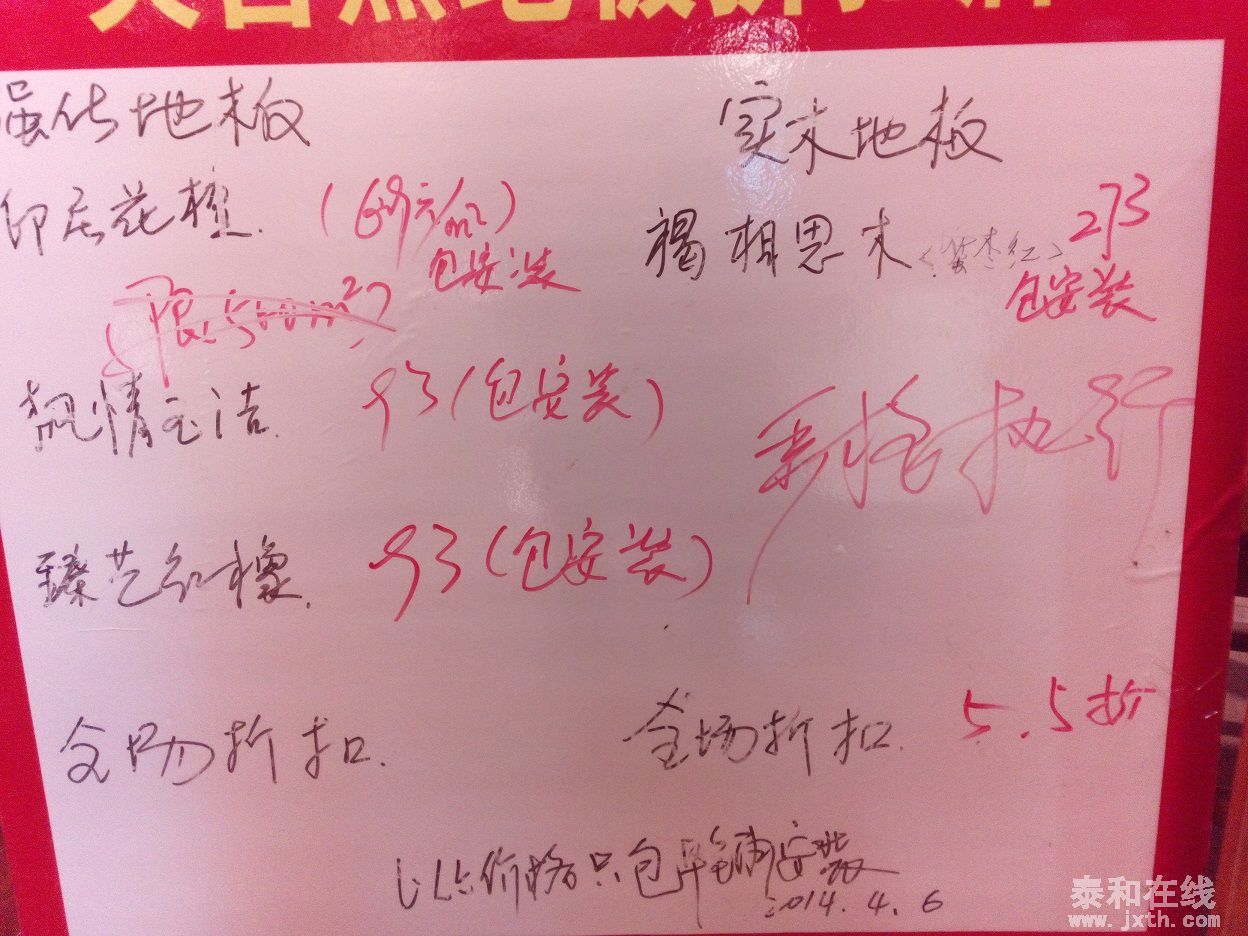 强化地板
印尼花檀 (69元/m²)
包安装
(限500m²)
飘情之洁 93(包安装)
臻艺红橡 93(包安装)
全场折扣
实木地板
褐相思木 273
包安装
执行
全场折扣 5.5折
以上价格只包平铺安装
2014.4.6
泰和在线
www.jxth.com